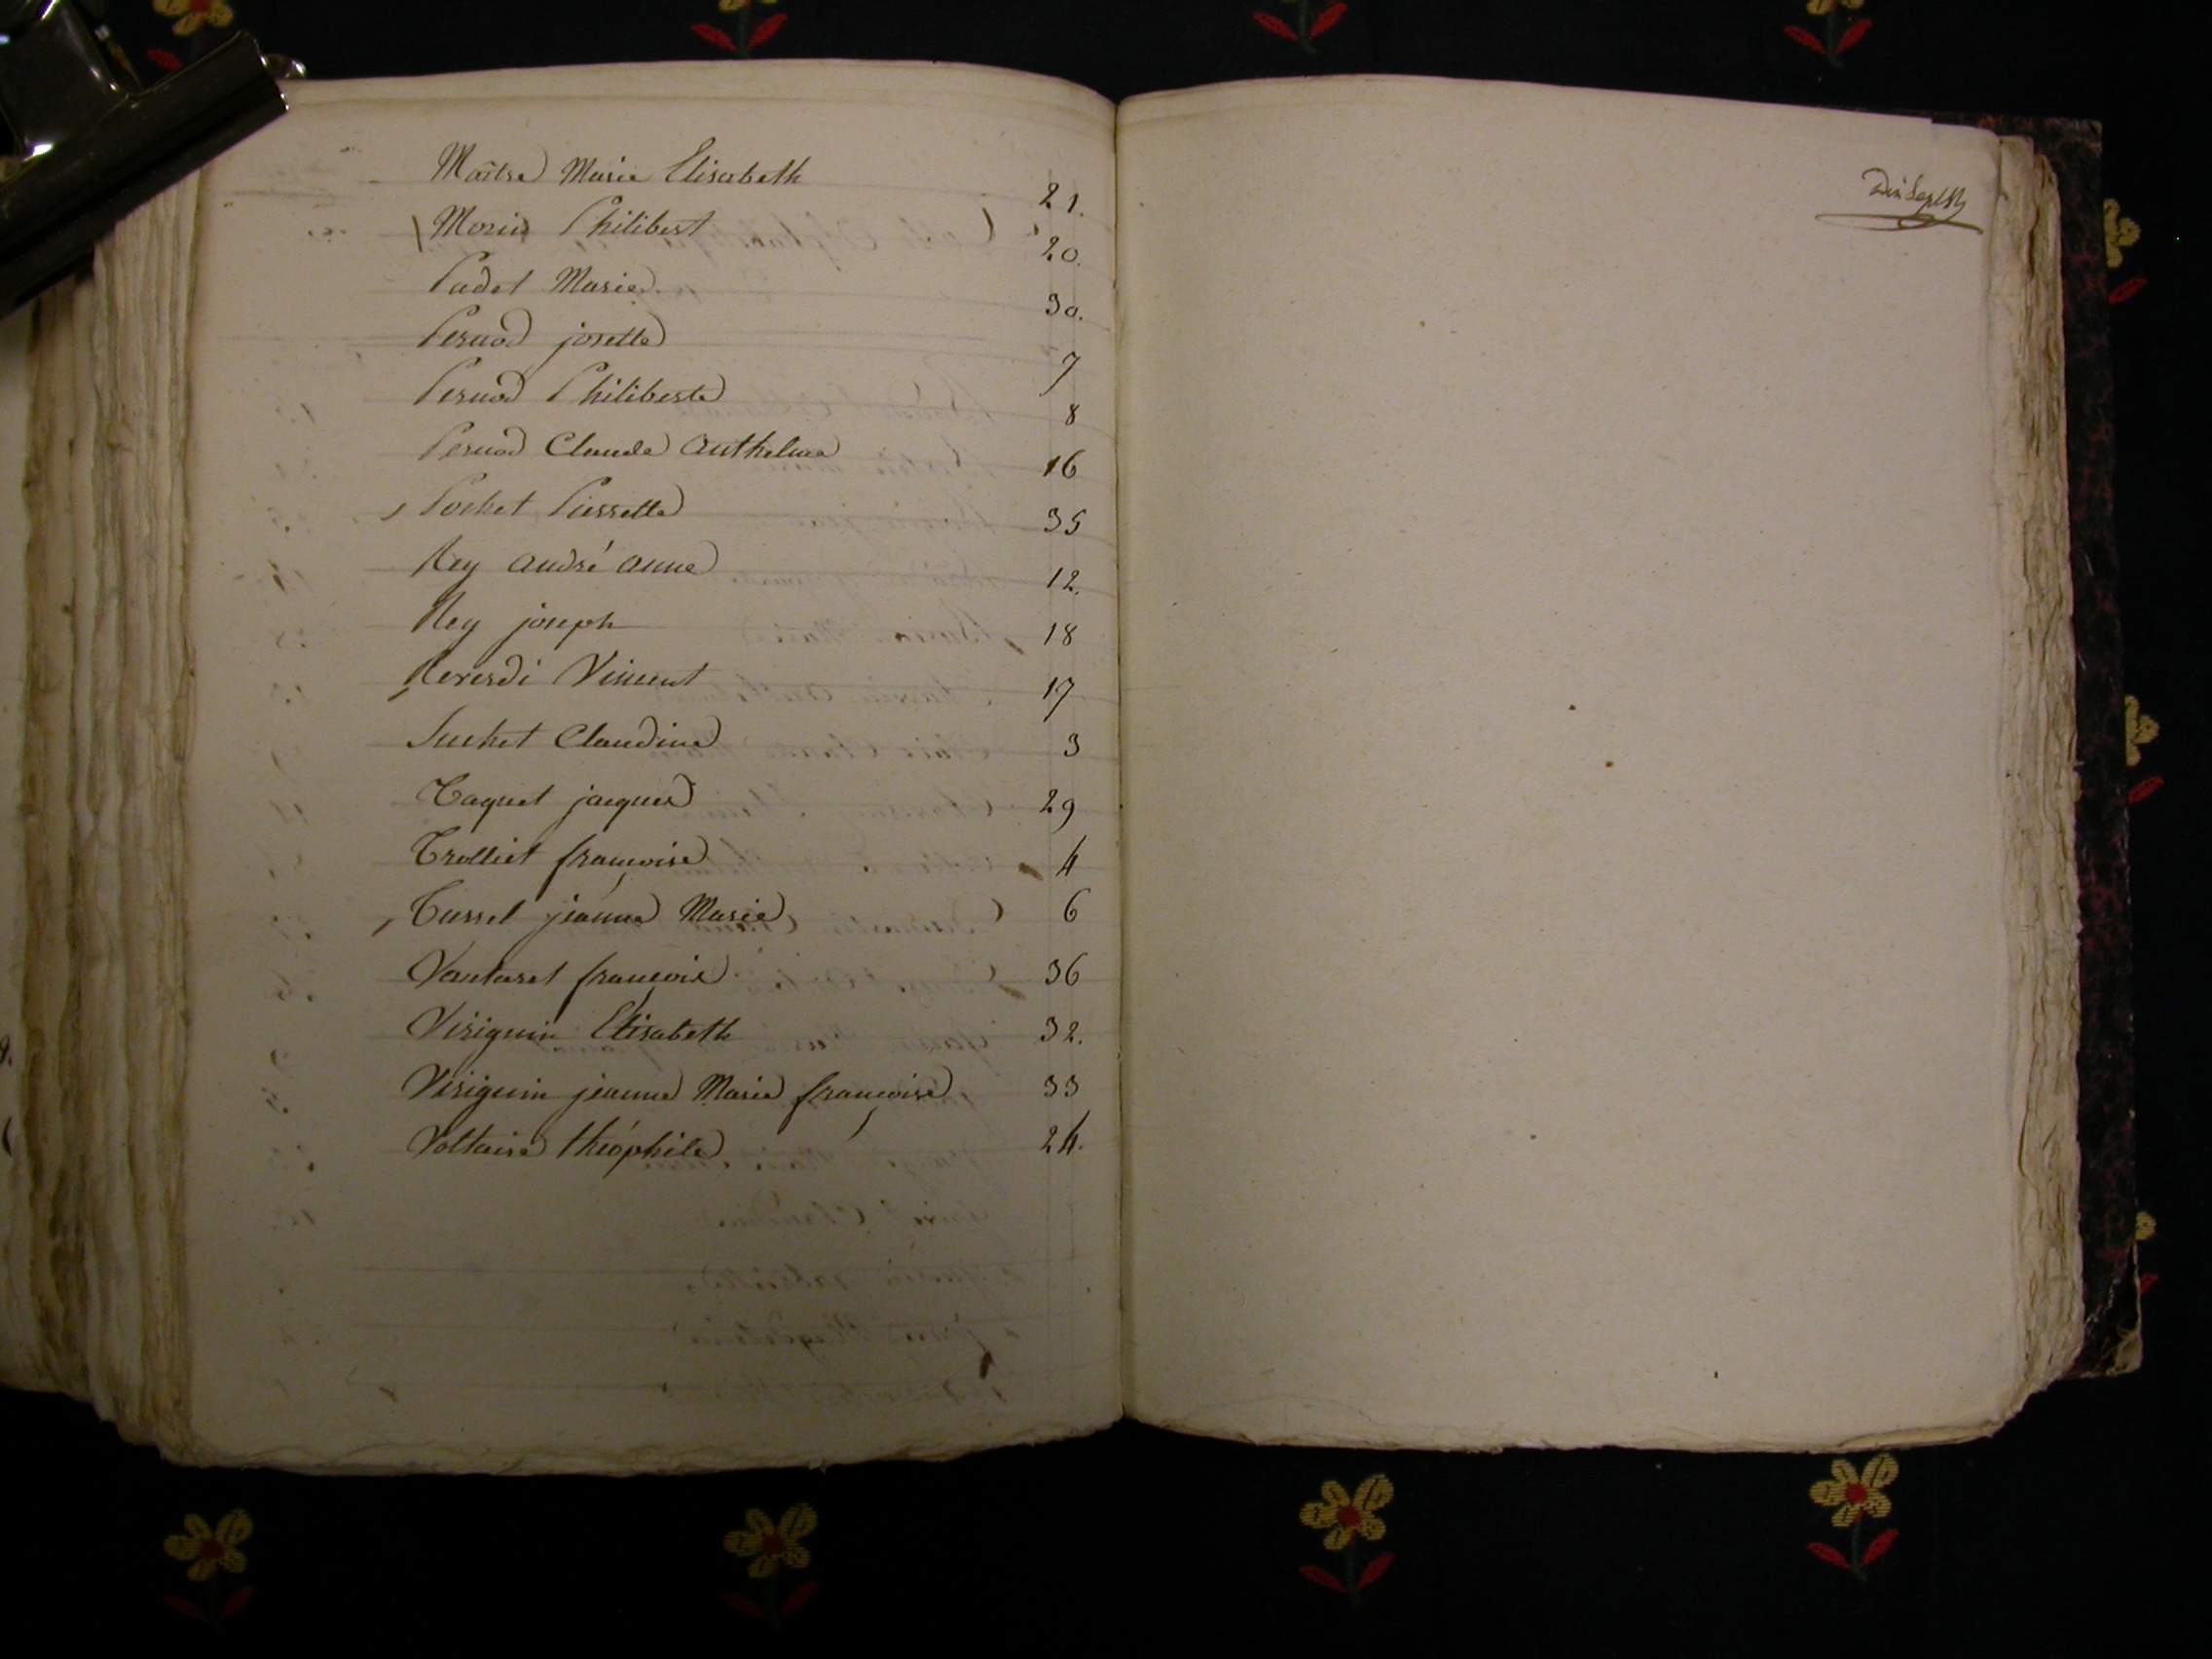 Maître Marie Elisabeth 21.
Morin Philibert 20.
Padet Marie 30.
Pernod josette 7
Pernod Philiberte 8
Pernod Claude Anthelme 16
Pochet Pierrette 35
Rey André anne 12.
Rey joseph 18
Reverdi Vincent 17
Suchet Claudine 3
Taquet jacques 29
Trolliet françoise 4
Tussel jeanne Marie 6
Vantaret françois 36
Viriguin Elisabeth 32.
Viriguin jeanne Marie françoise 33
Voltaire théophile 24.